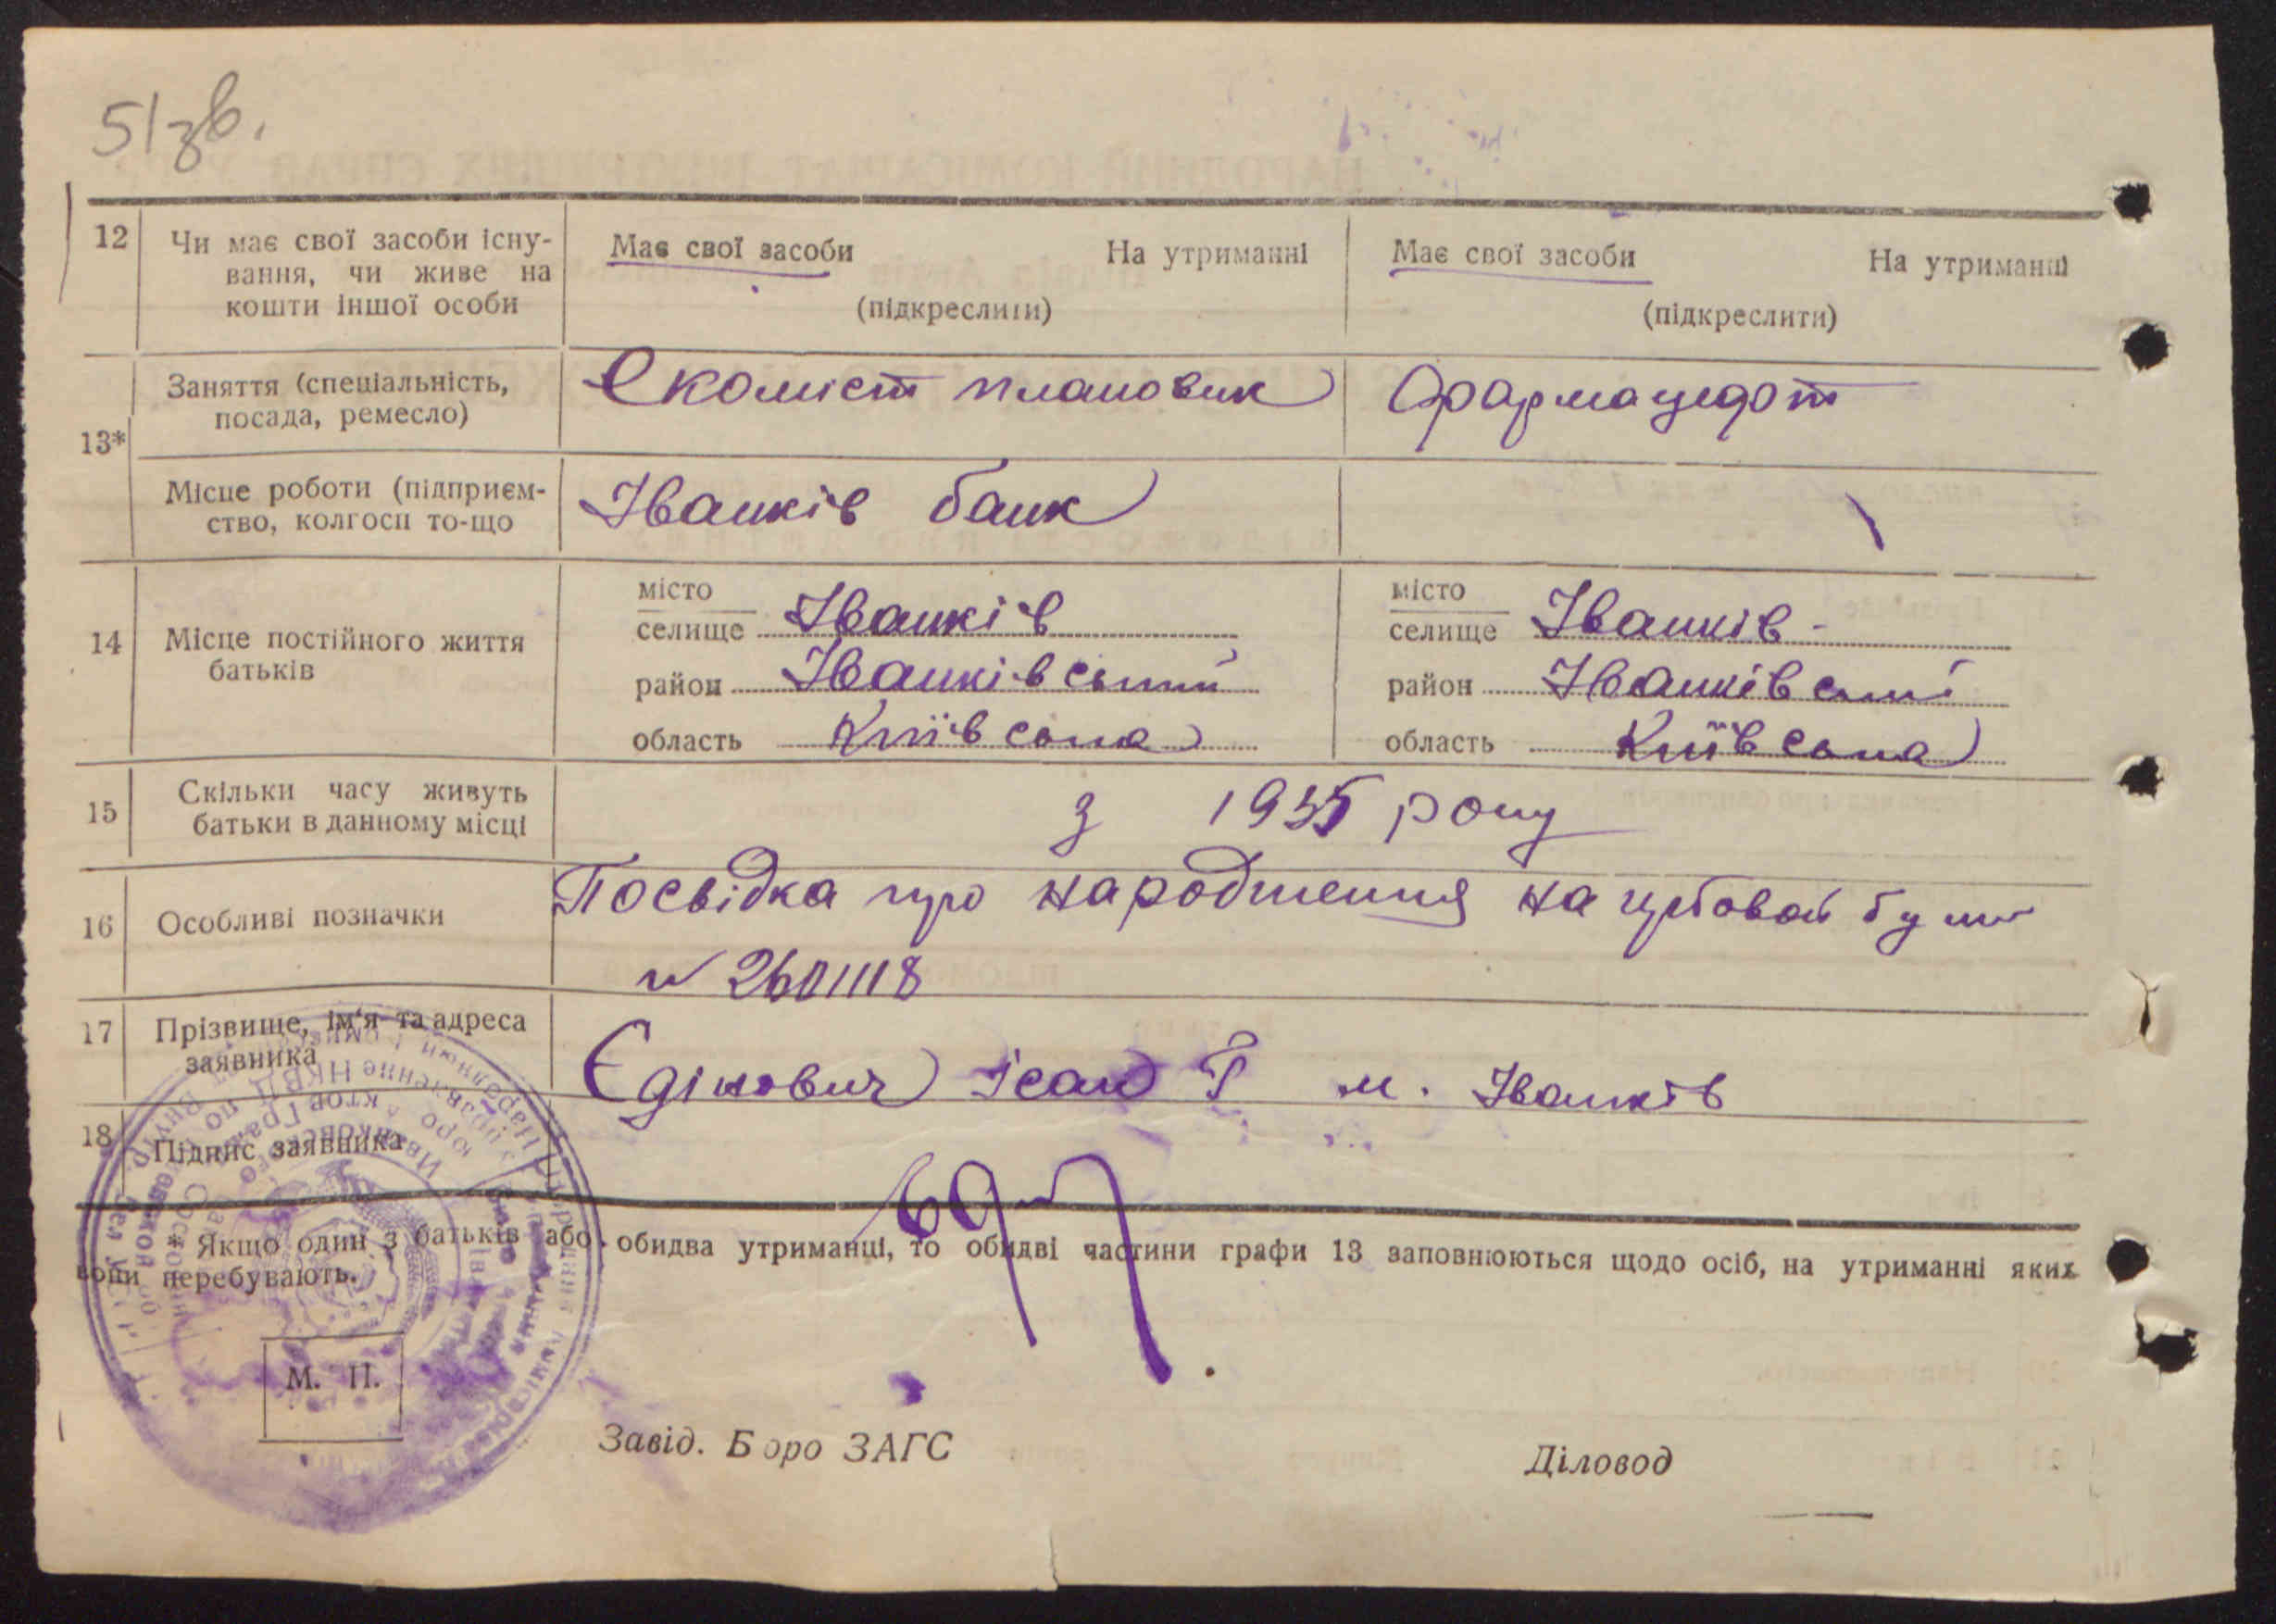 51зв.
12 Чи має свої засоби існу-
вання, чи живе на
кошти іншої особи
Має свої засоби На утриманні
(підкреслити)
Має свої засоби На утриманні
(підкреслити)
13*
Заняття (спеціальність,
посада, ремесло)
Екоміст плановик
Фармацефт
Місце роботи (підприєм-
ство, колгосп то-що
Іванків банк
14 Місце постійного життя
батьків
місто
селище Іванків
район Іванківський
область Київська
місто
селище Іванків
район Іванківскі
область Київська
15 Скільки часу живуть
батьки в данному місці
з 1935 року
16 Особливі позначки
Посвідка про народження на
№ 2601118
17 Прізвище, ім'я та адреса
заявника
Єдінович Ісак м. Іванків
18 Підпис заявника
* Якщо один з батьків або обидва утриманці, то обидві частини графи 13 заповнюються щодо осіб, на утриманні яких
вони перебувають.
М. П.
Завід. Бюро ЗАГС
Діловод